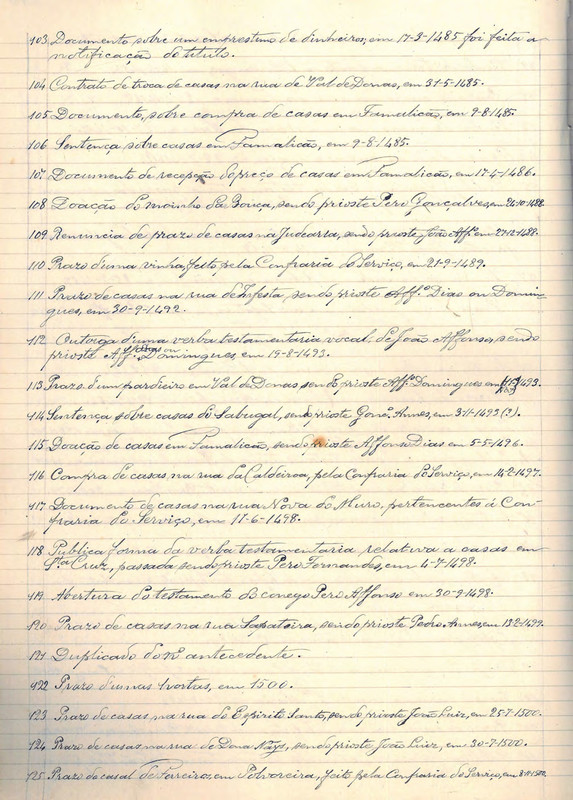 103 Documento sobre um emprestimo de dinheiros, em 17-3-1485 foi feita a
notificação do titulo.
104 Contrato de troca de casas na rua de Val de Donas, em 31-5-1485.
105 Documento, sobre compra de casas em Famalicão, em 9-8-1485.
106 Sentença sobre casas em Famalicão, em 9-8-1485.
107 Documento de recepção do preço de casas em Famalicão, em 17-4-1486.
108 Doação do moinho da Bouça, sendo prioste Pero Gonçalves, em
109 Renuncia de prazo de casas na Judearia, sendo prioste João Aff.º em 27-12-1488.
110 Prazo d'uma vinha, feito pela Confraria do Serviço, em 21-9-1489.
111 Prazo de casas na rua de Infesta, sendo prioste Aff.º Dias ou Domin-
gues, em 30-9-1492.
112 Outorga d'uma verba testamentaria vocal de João Affonso, sendo
prioste Aff.º Dias ou Domingues, em 19-8-1493.
113 Prazo d'um pardieiro em Val de Donas, sendo prioste Aff.º Domingues em 1493.
114 Sentença sobre casas do Sabugal, sendo prioste Gonç.º Annes, em 3-11-1493 (?).
115 Doação de casas em Famalicão, sendo prioste Affonso Dias em 5-5-1496.
116 Compra de casas, na rua da Caldeiroa, pela Confraria do Serviço, em 14-2-1497.
117 Documento de casas na rua Nova do Muro, pertencentes á Con-
fraria do Serviço, em 11-6-1498.
118 Publica forma da verba testamentaria relativa a casas em
S.ta Cruz, passada sendo prioste Pero Fernandes, em 4-7-1498.
119 Abertura do testamento do conego Pero Affonso em 30-9-1498.
120 Prazo de casas na rua Sapateira, sendo prioste Pedro Annes, em 13-2-1499.
121 Duplicado do n.º antecedente.
122 Prazo d'umas hortas, em 1500.
123 Prazo de casas na rua do Espirito Santo, sendo prioste João Luiz, em 25-7-1500.
124 Prazo de casas na rua de Dona Nays, sendo prioste João Luiz, em 30-7-1500.
125 Prazo do casal de Parceiros, em Polvoreira, feito pela Confraria do Serviço, em